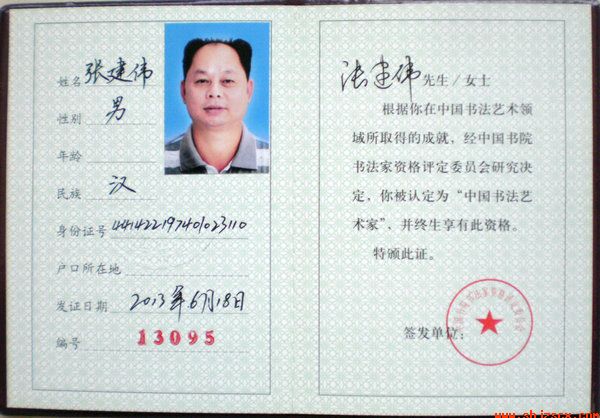 姓名 张建伟
性别 男
年龄
民族 汉
身份证号
户口所在地
发证日期 2013年6月18日
编号 13095
张建伟 先生/女士
根据你在中国书法艺术领
域所取得的成就，经中国书院
书法家资格评定委员会研究决
定，你被认定为“中国书法艺
术家”、并终生享有此资格。
特颁此证。
签发单位：